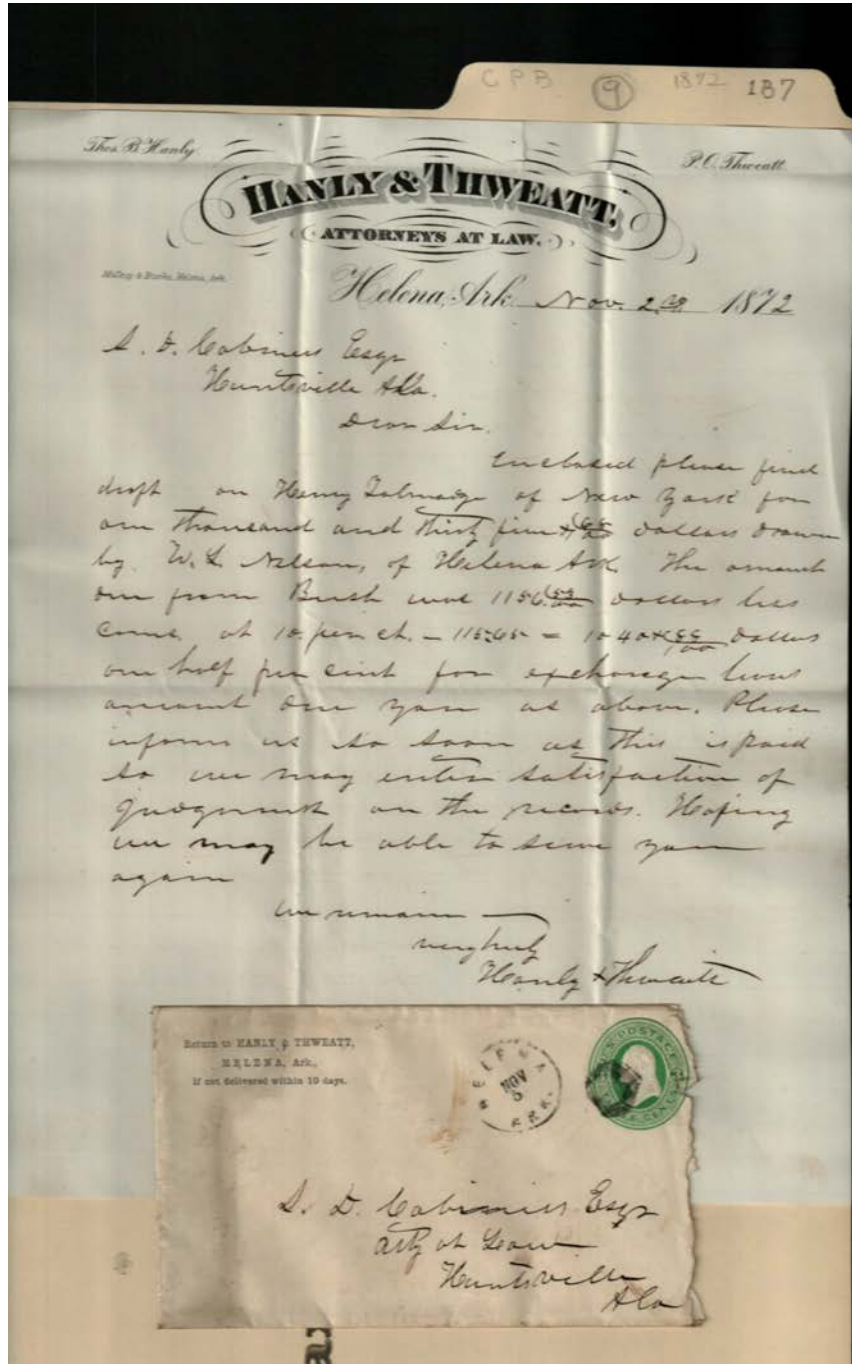 CPB 9 1872 187
Thos. B. Hanly.
P. O. Thweatt.
HANLY & THWEATT,
ATTORNEYS AT LAW.
Helena, Ark. Nov. 2nd 1872
S. D. Cabiniss Esqr
Huntsville Ala.
Dear Sir.
Enclosed please find
draft on Henry Talmadge of New York for
one thousand and thirty five & 65/100 dollars drawn
by W. L. Nelson, of Helena Ark. The amount
due from Bush was 1156 dollars less
Coms. at 10. per ct. — 115.65 = 1040 & dollars
one half per cent for exchange leaves
amount due you as above. Please
inform us so soon as this is paid
so we may enter satisfaction of
judgement on the records. Hoping
we may be able to serve you
again
we remain
very truly
Hanly & Thweatt
Return to HANLY & THWEATT,
HELENA, Ark.,
If not delivered within 10 days.
HELENA
NOV
5
ARK.
U.S. POSTAGE
THREE CENTS
S. D. Cabiniss Esqr
Atty at Law
Huntsville
Ala